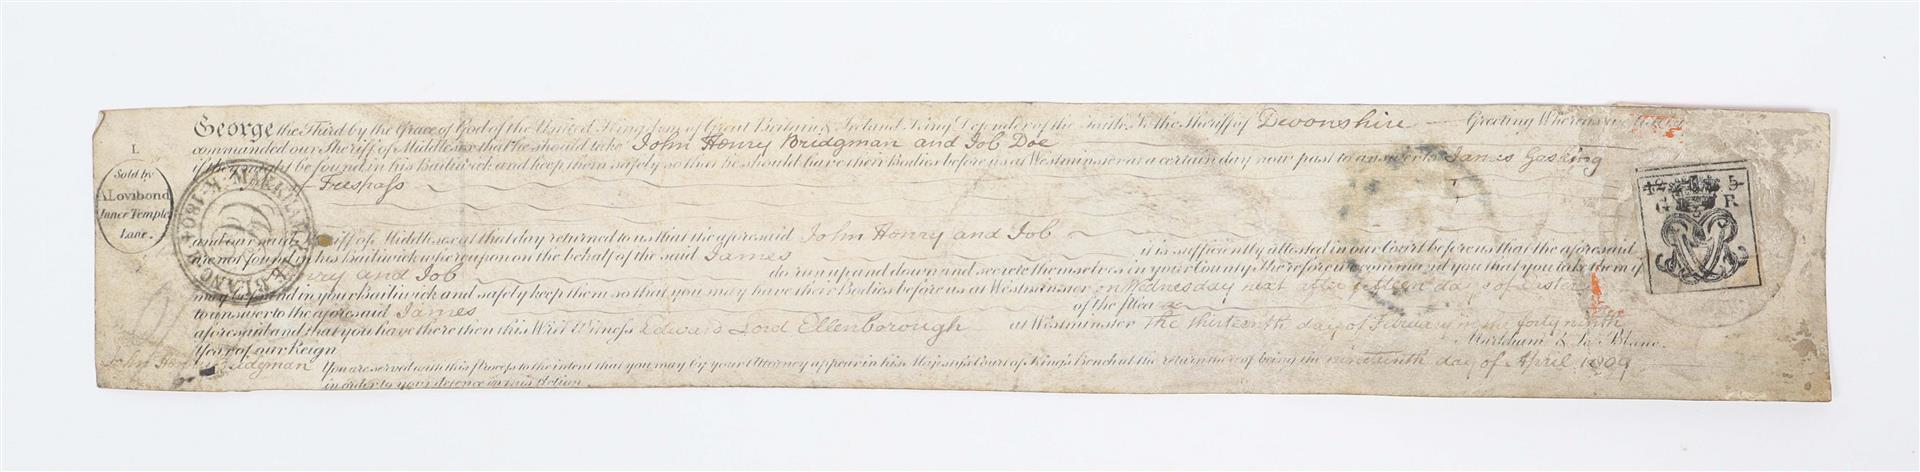 George the Third by the Grace of God of the United Kingdom of Great Britain & Ireland King Defender of the Faith To the Sheriff of Devonshire Greeting Whereas we lately
commanded our Sheriff of Middlesex that he should take John Henry Bridgman and Job Doe
if they might be found in his Bailiwick and keep them safely so that he should have their Bodies before us at Westminster at a certain day now past to answer to James Gosking
of Trespass
and our said Sheriff of Middlesex at that day returned to us that the aforesaid John Henry and Job
are not found in his Bailiwick whereupon on the behalf of the said James it is sufficiently attested in our Court before us that the aforesaid
Henry and Job do run up and down and secrete themselves in your County Therefore we command you that you take them if
may be found in your Bailiwick and safely keep them so that you may have their Bodies before us at Westminster on Wednesday next after fifteen days of Easter
to answer to the aforesaid James of the Plea
aforesaid and that you have there then this Writ Witness Edward Lord Ellenborough at Westminster The thirteenth day of February in the forty ninth
Year of our Reign Markham & Le Blanc
John Bridgman You are served with this Process to the intent that you may by your Attorney appear in his Majestys Court of Kings Bench at the return thereof being the nineteenth day of April 1809
in order to your defence in this Action
I.
Sold by
A Lovibond
Inner Temple
Lane.
MARKHAM & LE BLANC
5
G 3 R